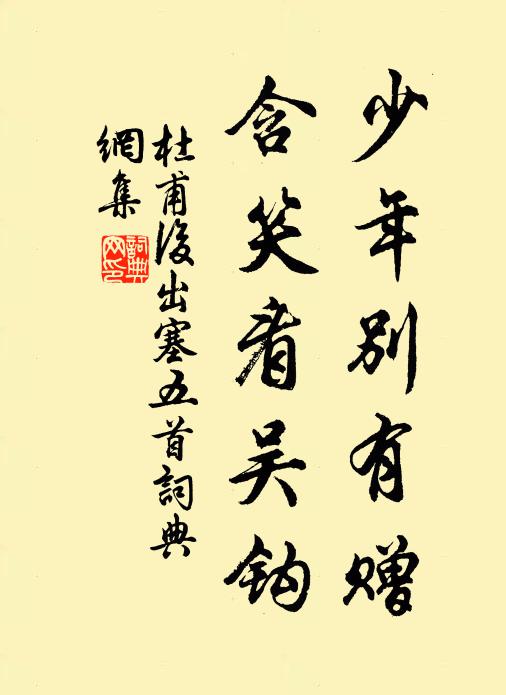 少年别有赠
含笑看吴钩
杜甫後出塞五首詞典
網集
詞典
网印